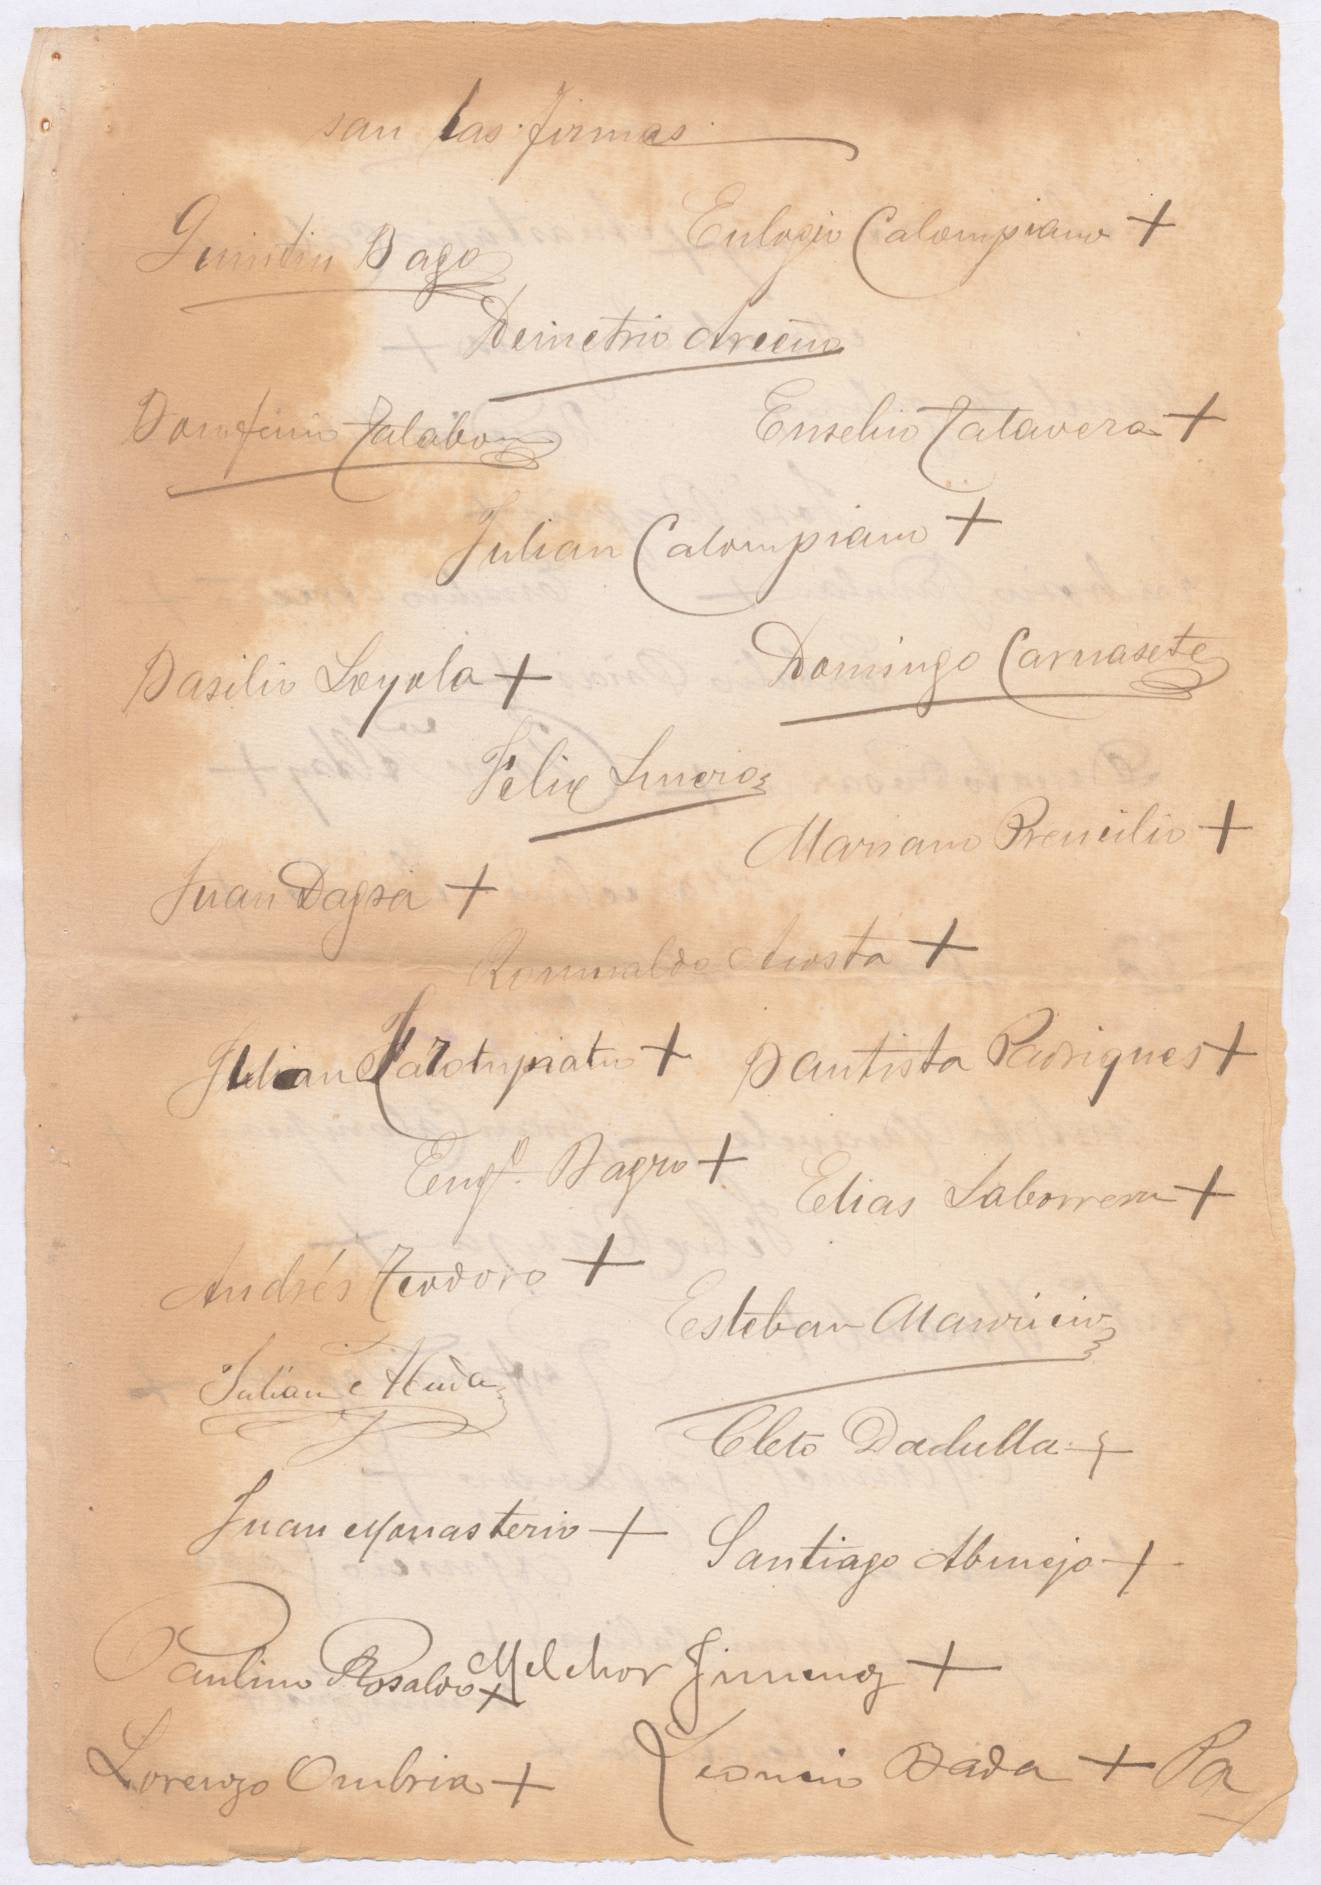 san las firmas.
Quintin Bago
Eulogio Calompiano +
Demetrio
Talabon
Eusebio Talavera +
Julian Calompiano +
Basilio Loyola +
Domingo Carnasete
Felix
Mariano +
Juan Dagsa +
Romualdo Acosta +
Julian +
Bautista Rodrigues +
Bagro +
Elias +
Andrés Teodoro +
Esteban Mauricio
Julian
Cleto Dadulla +
Juan Monasterio +
Santiago Abuejo +
Paulino Rosaldo +
Melchor Jimenez +
Lorenzo Ombria +
Leoncio Bada + Pa